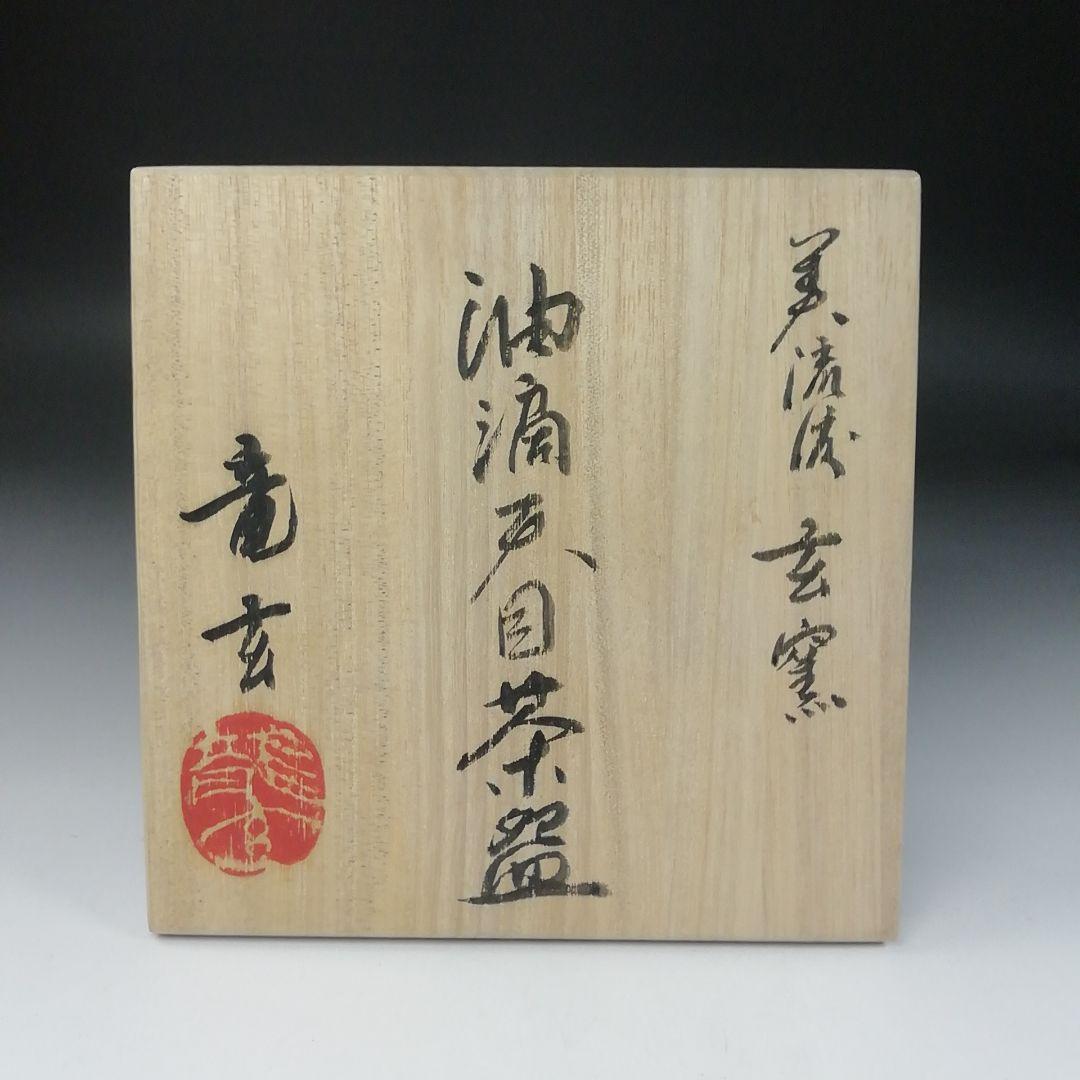 美濃 玄窯
油滴天目茶盌
竜玄